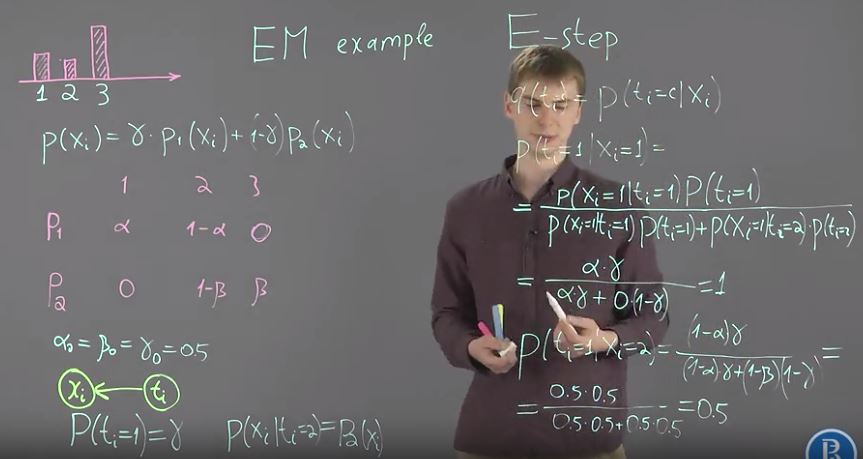 EM example
E-step
1 2 3
p(xᵢ) = γ · p₁(xᵢ) + (1-γ) p₂(xᵢ)
1 2 3
P₁ α 1-α 0
P₂ 0 1-β β
α₀ = β₀ = γ₀ = 0.5
xᵢ ← tᵢ
P(tᵢ=1) = γ p(xᵢ|tᵢ=2) = P₂(xᵢ)
= p(tᵢ=c|xᵢ)
p(tᵢ=1|xᵢ=1) =
= p(xᵢ=1|tᵢ=1) P(tᵢ=1)
p(xᵢ=1|tᵢ=1) p(tᵢ=1) + p(xᵢ=1|tᵢ=2) · p(tᵢ=2)
= α·γ
α·γ + 0·(1-γ) = 1
p(tᵢ=1|xᵢ=2) = (1-α)γ
(1-α)·γ + (1-β)(1-γ) =
= 0.5 · 0.5
0.5 · 0.5 + 0.5 · 0.5 = 0.5